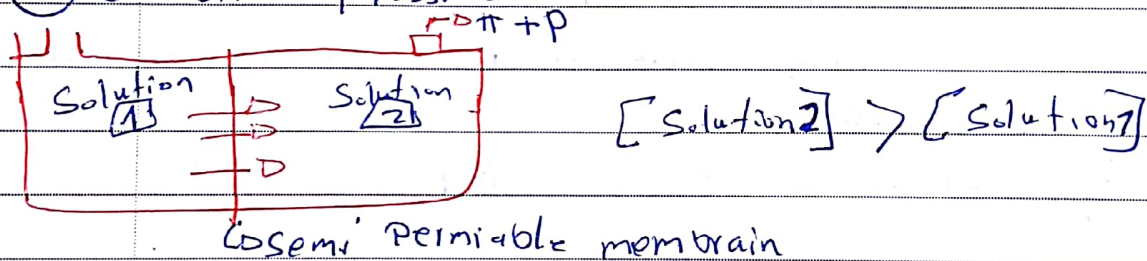 π + P
Solution
1
Solution
2
[Solution2] > [Solution1]
semi Permiable membrain